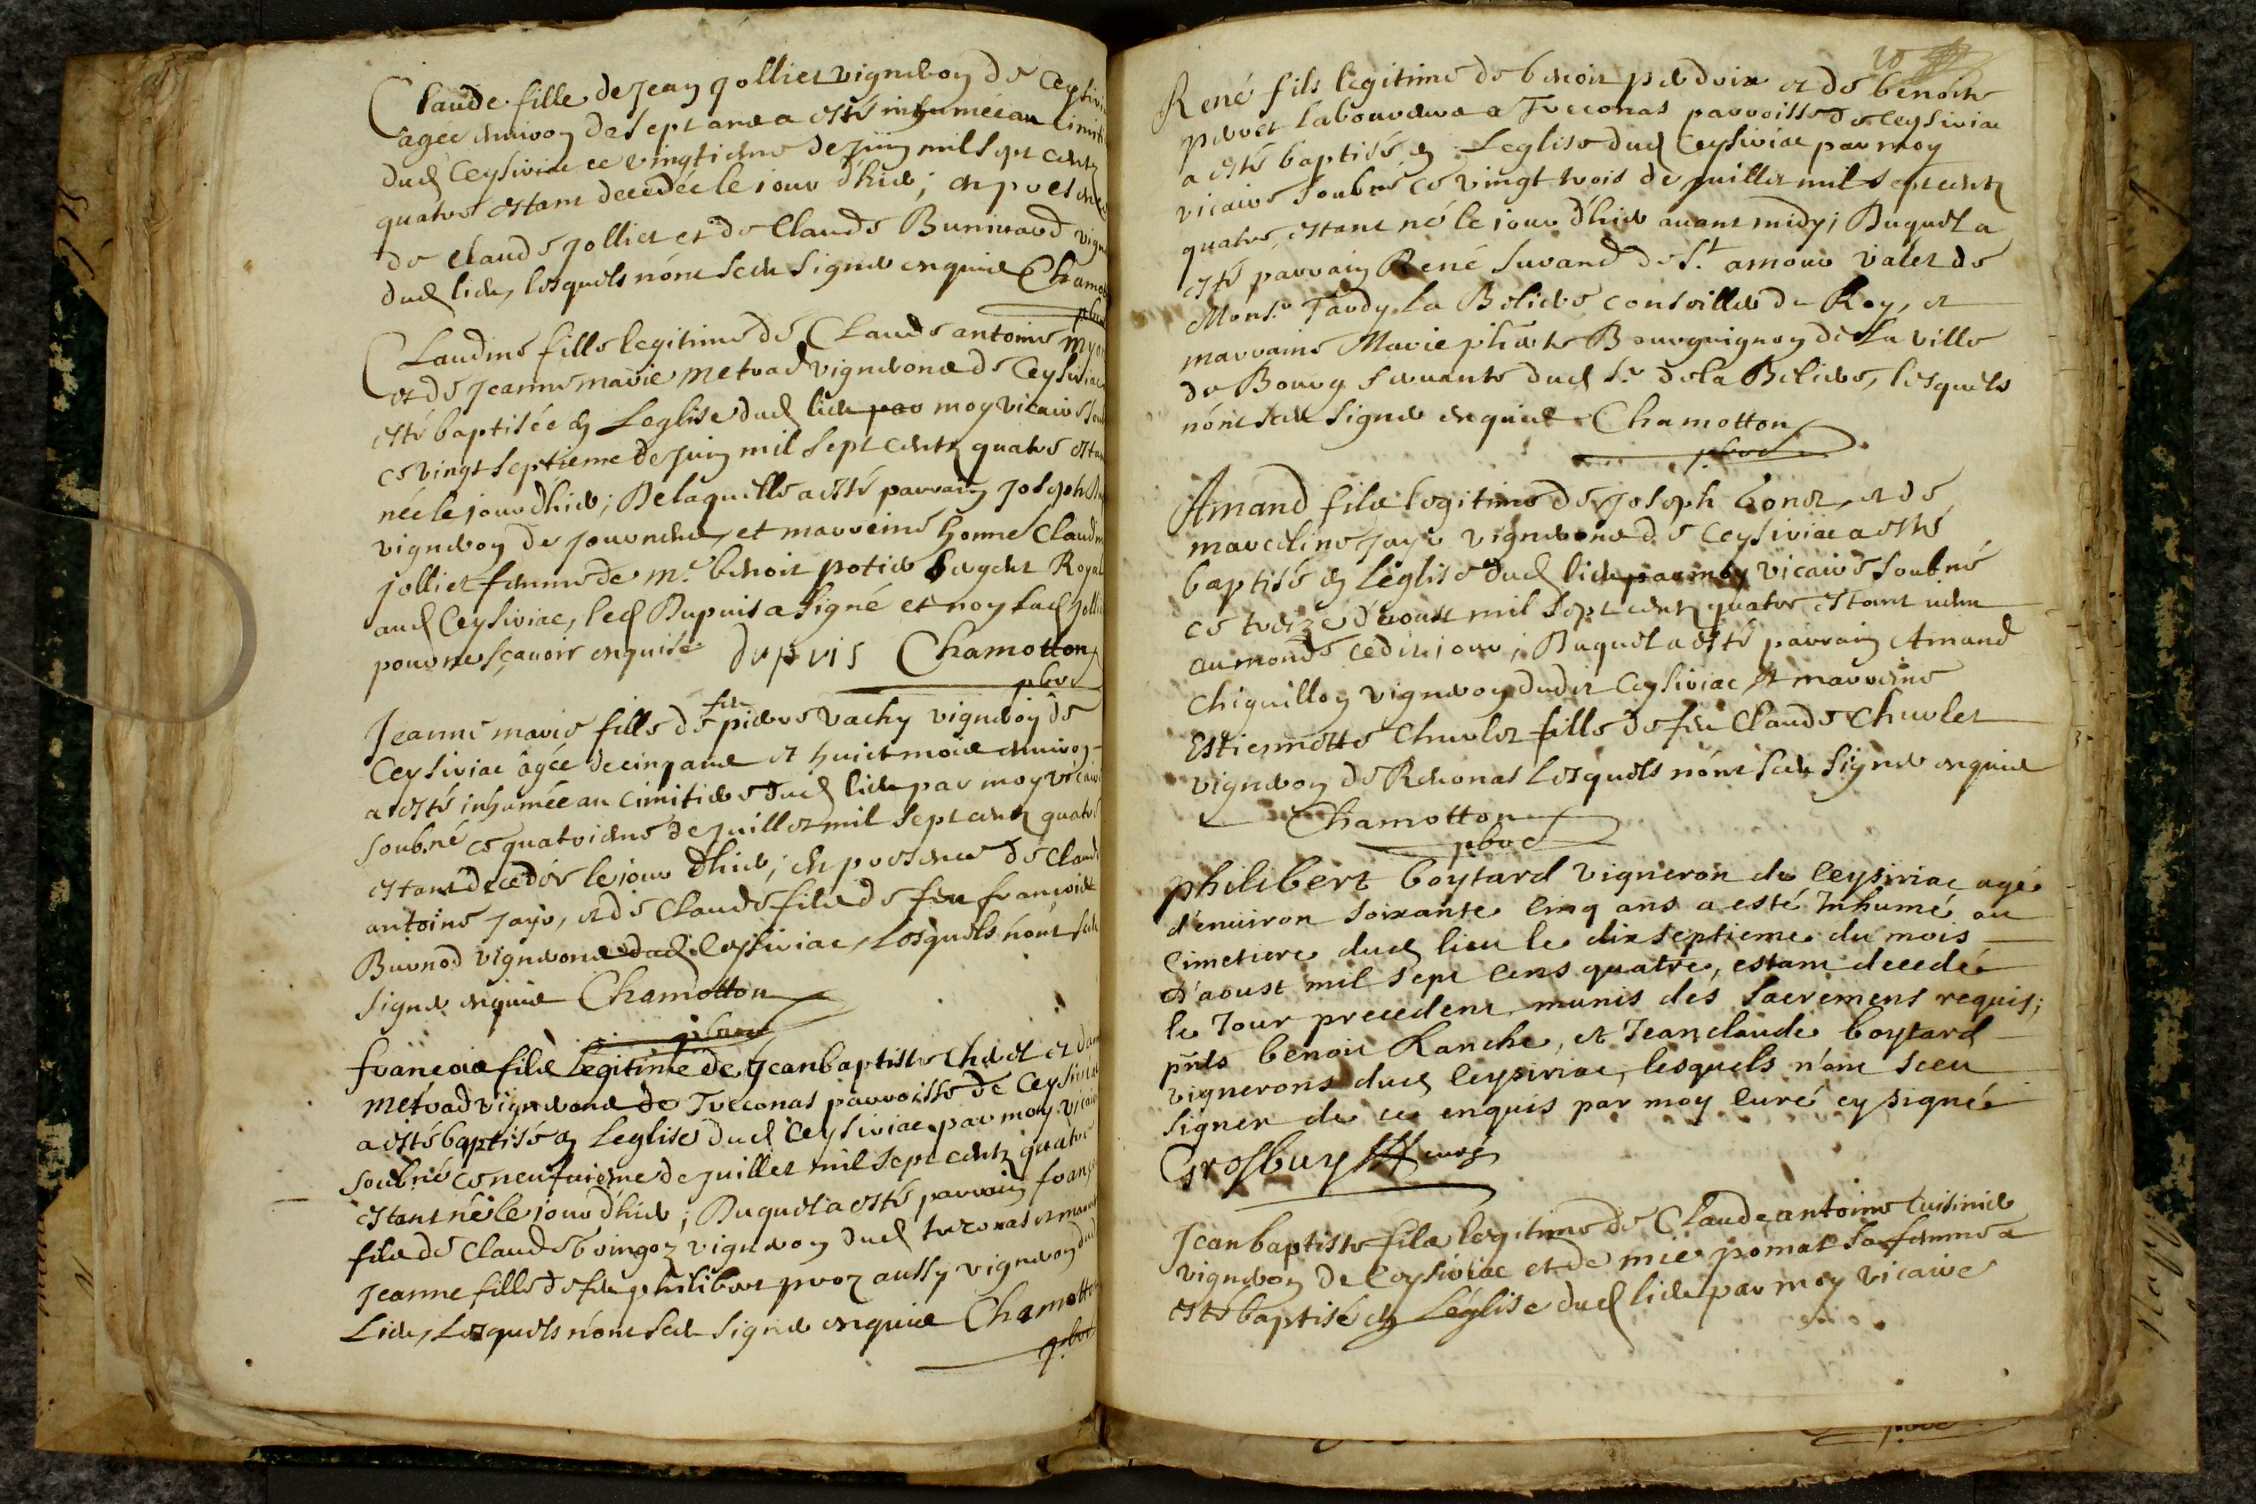 Claude fille de Jean Jolliet vigneron de Ceysiria
agée enuiron de sept ans a esté inhumée au Cimit
dud Ceysiriac ce vingtieme de juin mil sept centz
quatre estant decedée le iour d'hier; en presence
de Claude Jolliet et de Claude Buniuard vign
dud lieu, lesquels n'ont sceu signer enquis Chamo
pbre
Claudine fille legitime de Claude antoine Myon
et de Jeanne marie metrad vignerons de Ceysiriac
esté baptisée en L'eglise dud lieu par moy vicaire soub
ce vingt septieme de juin mil sept centz quatre estan
née le iour d'hier; De laquelle a esté parrain Joseph
vigneron de Journans, et marreine honne Claudi
jolliet femme de mr. benoit potier sergent Royal
aud Ceysiriac, led Dupuis a signé et non lad jolli
pour ne sçauoir enquise dupuis Chamotton
pbre
Jeanne marie fille de feu pierre vachy vigneron de
Ceysiriac âgée de cinq ans et huict mois enuiron
a esté inhumée au cimitiere dud lieu par moy vicair
soubné ce quatrieme de juillet mil sept centz quatre
estant decedée le iour d'hier; en presence de Claude
antoine Jayr, et de Claude fils de feu françois
Burnod vignerons dud Ceysiriac, Lesquels n'ont sceu
signer enquis Chamotton
pbre
françois fils legitime de Jean baptiste Chevet et dan
metrad vignerons de Treconas parroisse de Ceysiria
a esté baptisé en L'eglise dud Ceysiriac par moy vicair
soubné ce neufuieme de juillet mil sept centz quatre
estant né le iour d'hier; Duquel a esté parrain franç
fils de Claude bringoz vigneron dud treconas et marre
Jeanne fille de feu philibert proz aussy vigneron dud
Lieu, Lesquels n'ont sceu signer enquis Chamotto
pbre
René fils legitime de benoit perdrix et de benoite
perret laboureurs a Treconas parroisse de Ceysiriac
a esté baptisé en L'eglise dud Ceysiriac par moy
vicaire soubné ce vingt trois de juillet mil sept centz
quatre, estant né le iour d'hier auant midy; Duquel a
esté parrain René Surand de St. amour valet de
Monsr. Tardy La Beliere conseiller du Roy, et
marraine Marie Bourguignon de La ville
de Bourg seruante dud sr. de la Beliere, lesquels
n'ont sceu signer enquis Chamotton
pbre
Amand fils legitime de Joseph bonet, et de
marceline Jayr vignerons de Ceysiriac a esté
baptisé en L'eglise dud lieu par moy vicaire soubné
ce treize d'aoust mil sept centz quatre estant uenu
au monde ce dit iour; Duquel a esté parrain Amand
Chiquillon vigneron dudit Ceysiriac, et marreine
Estiennette Churlet fille de feu Claude Churlet
vigneron de Reuonas Lesquels n'ont sceu signer enquis
Chamotton
pbre
philibert boytard vigneron de Ceysiriac agé
d'enuiron soixante cinq ans a esté Inhumé au
Cimetiere dud lieu le dix septieme du mois
d'aoust mil sept cens quatre, estant decedé
le Jour precedent munis des sacremens requis;
pnts benoit Ranche, et Jean claude boytard
vignerons dud Ceysiriac, lesquels n'ont sceu
signer de ce enquis par moy curé cy signé
Grosbuy curé
Jean baptiste fils legitime de Claude antoine Cuisinier
vigneron de Ceysiriac et de mie pomat sa femme a
esté baptisé en L'église dud lieu par moy vicaire